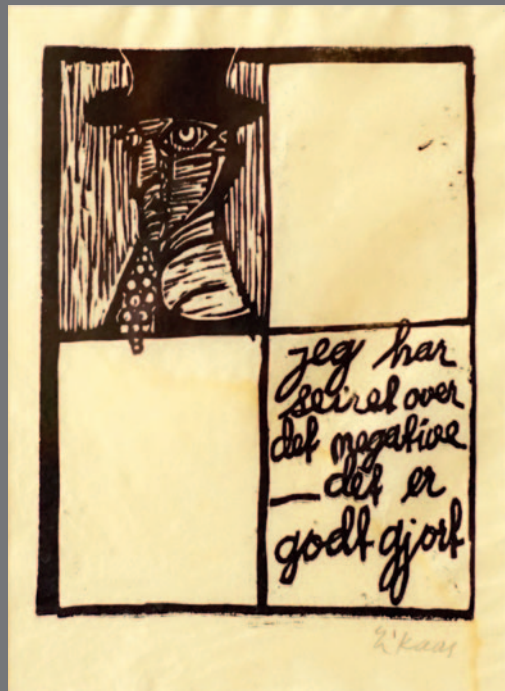 jeg har
seiret over
det negative
— det er
godt gjort
Kaas